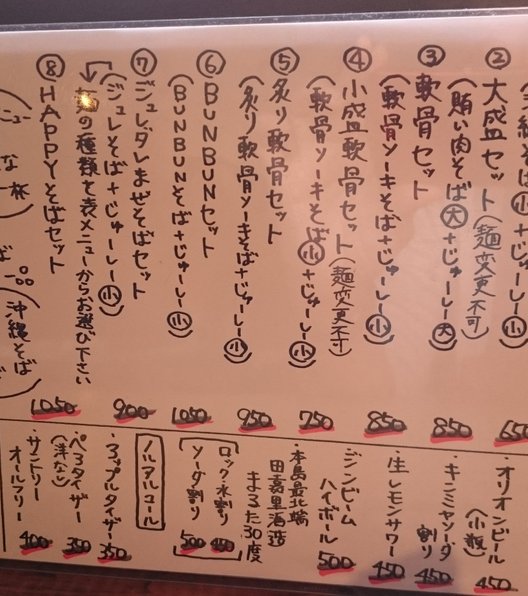 三 そば 小+じゅーしー小
650
②大盛セット(麺変更不可)
(賄い肉そば大+じゅーしー大)
850
③軟骨セット
(軟骨ソーキそば+じゅーしー小)
850
④小盛軟骨セット(麺変更不可)
(軟骨ソーキそば小+じゅーしー小)
750
⑤炙り軟骨セット
(炙り軟骨ソーキそば+じゅーしー小)
950
⑥BUNBUNセット
(BUNBUNそば+じゅーしー小)
1050
⑦ジュレダレまぜそばセット
(ジュレそば+じゅーしー小)
900
麺の種類を表メニューからお選び下さい
⑧HAPPYそばセット
1050
沖縄そば
・オリオンビール
(小瓶)
450
・キンミヤソーダ
割り
450
・生レモンサワー
450
・ジンビーム
ハイボール
500
・本島最北端
田嘉里酒造
まるた30度
ロック・水割り
450
ソーダ割り
500
ノンアルコール
・アップルタイザー
350
・ペアタイザー
(洋なし)
350
・サントリー
オールフリー
400